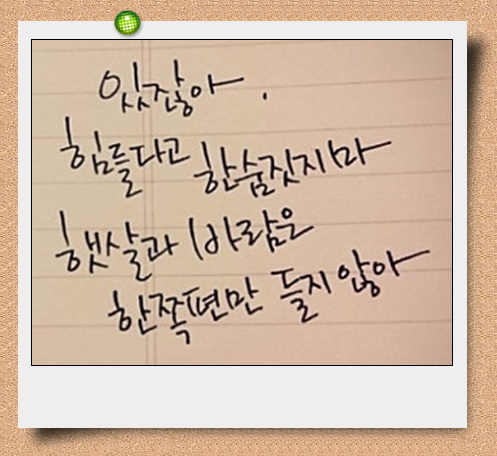 있잖아.
힘들다고 한숨짓지마
햇살과 바람은
한쪽편만 들지않아